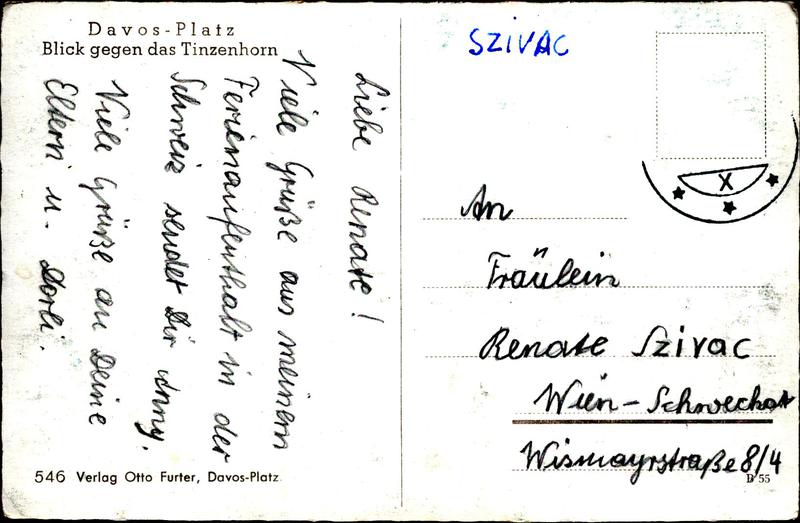 Davos-Platz
Blick gegen das Tinzenhorn
Liebe Renate!
Viele Grüße aus meinem
Ferienaufenthalt in der
Schweiz sendet Dir
Viele Grüße an Deine
Eltern u. Dorli.
546 Verlag Otto Furter, Davos-Platz
SZIVAC
X
An
Fräulein
Renate Szivac
Wien-Schwechat
Wismayrstraße 8/4
B 55